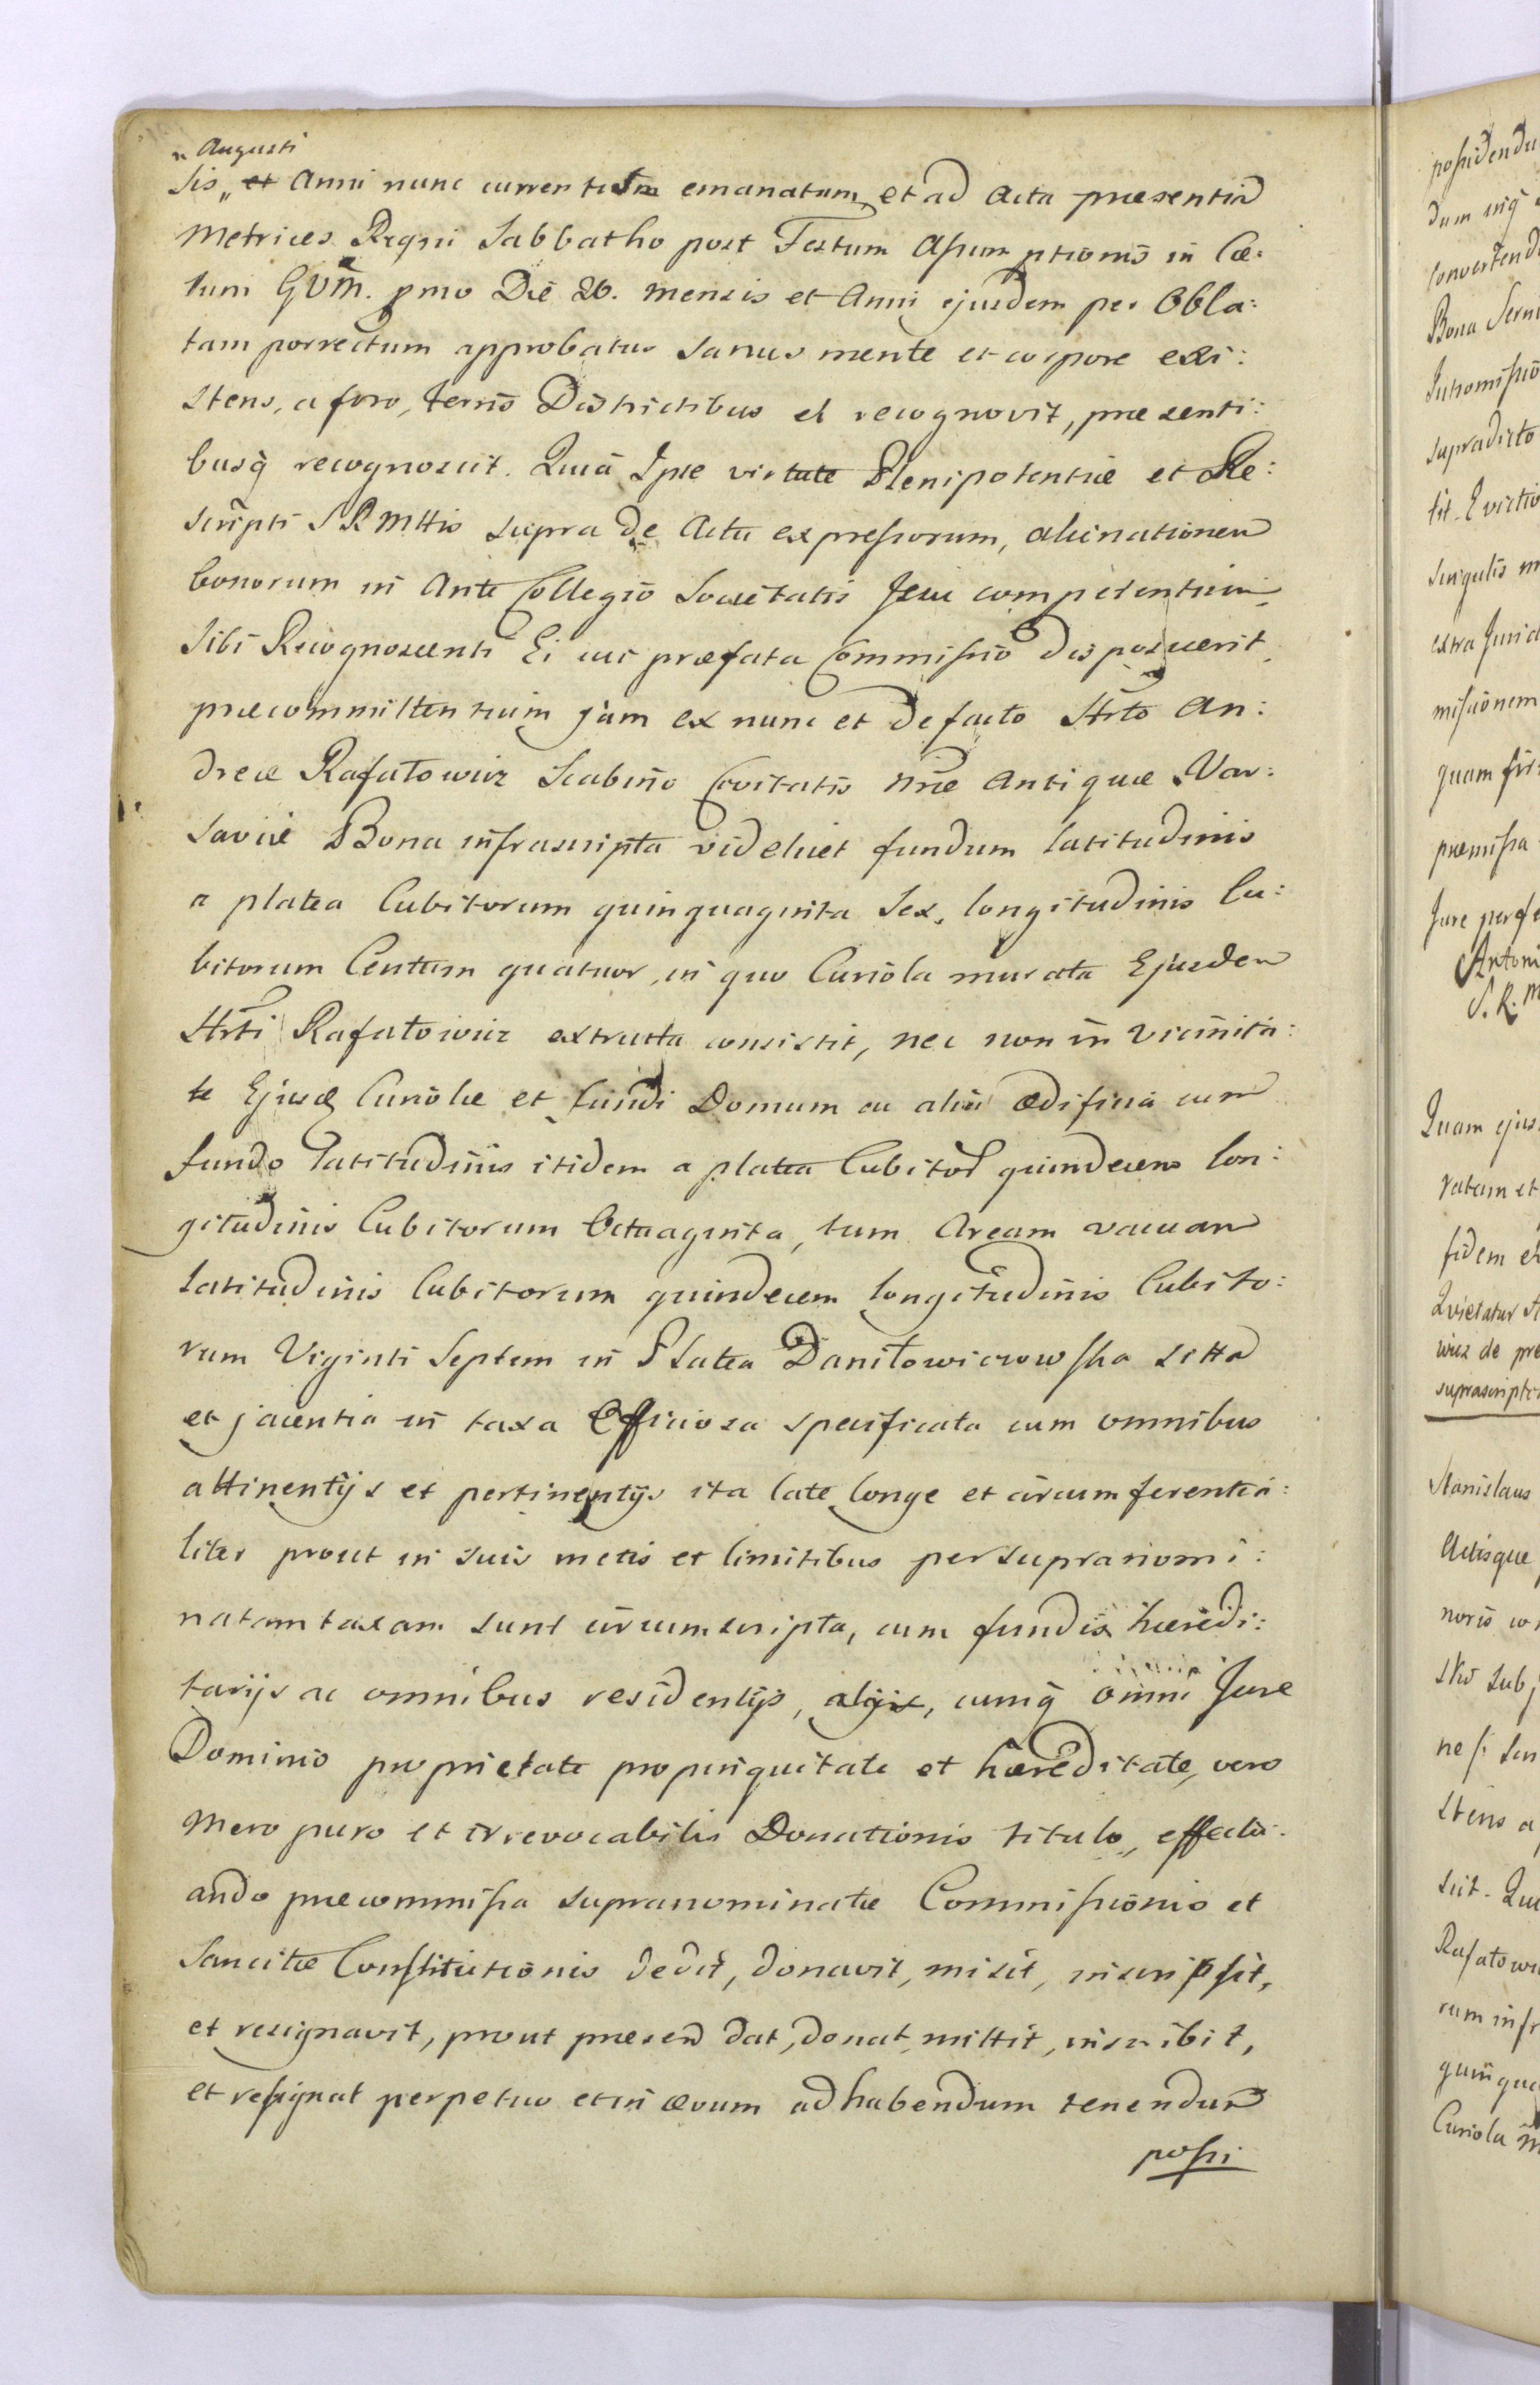 „ Augusti
sis „ et Anni nunc currentis emanatum, et ad Acta praesentia
Metrices Regni Sabbatho post Festum Assumptionis in Cæ:
lum GVM. pmo Die 20. mensis et Anni ejusdem per Obla:
tam porrectum approbatus sanus mente et corpore exi:
stens, a foro, terris Districtibus et recognovit, præsenti:
busq̃ recognoscit. Quiã Ipse virtute Plenipotentiæ et Re:
scripti S R Mttis supra de Actu expressorum, alienationem
bonorum in Ante Collegio Societatis Jesu competentium
sibi Recognoscenti Ei cui præfata Commissio disposuerit,
præcommittentium jam ex nunc et de facto Strto An:
dreæ Rafałowicz Scabino Civitatis nræ Antiquæ Var:
saviæ Bona infrascripta videlicet fundum latitudinis
a platea Cubitorum quinquaginta sex, longitudinis Cu:
bitorum Centum quatuor, in quo Curiola murata Ejusdem
Strti Rafałowicz extructa consistit, nec non in vicinita:
te Ejusd Curiolæ et fundi Domum cu alia ædificia cum
fundo latitudinis itidem a platea Cubitor quindecem lon:
gitudinis Cubitorum Octuaginta, tum Aream vacuam
latitudinis Cubitorum quindecem longitudinis Cubito:
rum Viginti Septem in Platea Daniłowiczowska sitta
et jacentia in taxa Officiosa specificata cum omnibus
attinentijs et pertinentijs ita late longe et circumferentia:
liter prout in suis metis et limitibus per supranomi:
natam taxam sunt circumscripta, cum fundis hæredi:
tarijs ac omnibus residentijs, alijs, cumq̃ omni Jure
Dominio proprietate propinquitate et hæreditate, vero
mero puro et irrevocabilis Donationis titulo, effectu:
ando præcommissa supranominatæ Commissionis et
Sancitæ Constitutionis dedit, donavit, misit, inscripsit,
et resignavit, prout præsen dat, donat, mittit, inscribit,
et resignat perpetuo et in ævum ad habendum tenendum
possi
possidendu
dum
Convertend
Bona
Intromissio
supradicto
tit. Evictio
singulis
extra
missionem
quam
præmissa
Jure
Antoni
S. R. M
Quam ejus
ratam et
fidem et
Quietatur
wicz de pre
suprascripto
Stanislaus
Actisque
noris
sub
ne
stens a
scit. Qui
Rafałowi
rum infr
quinqua
Curiola m